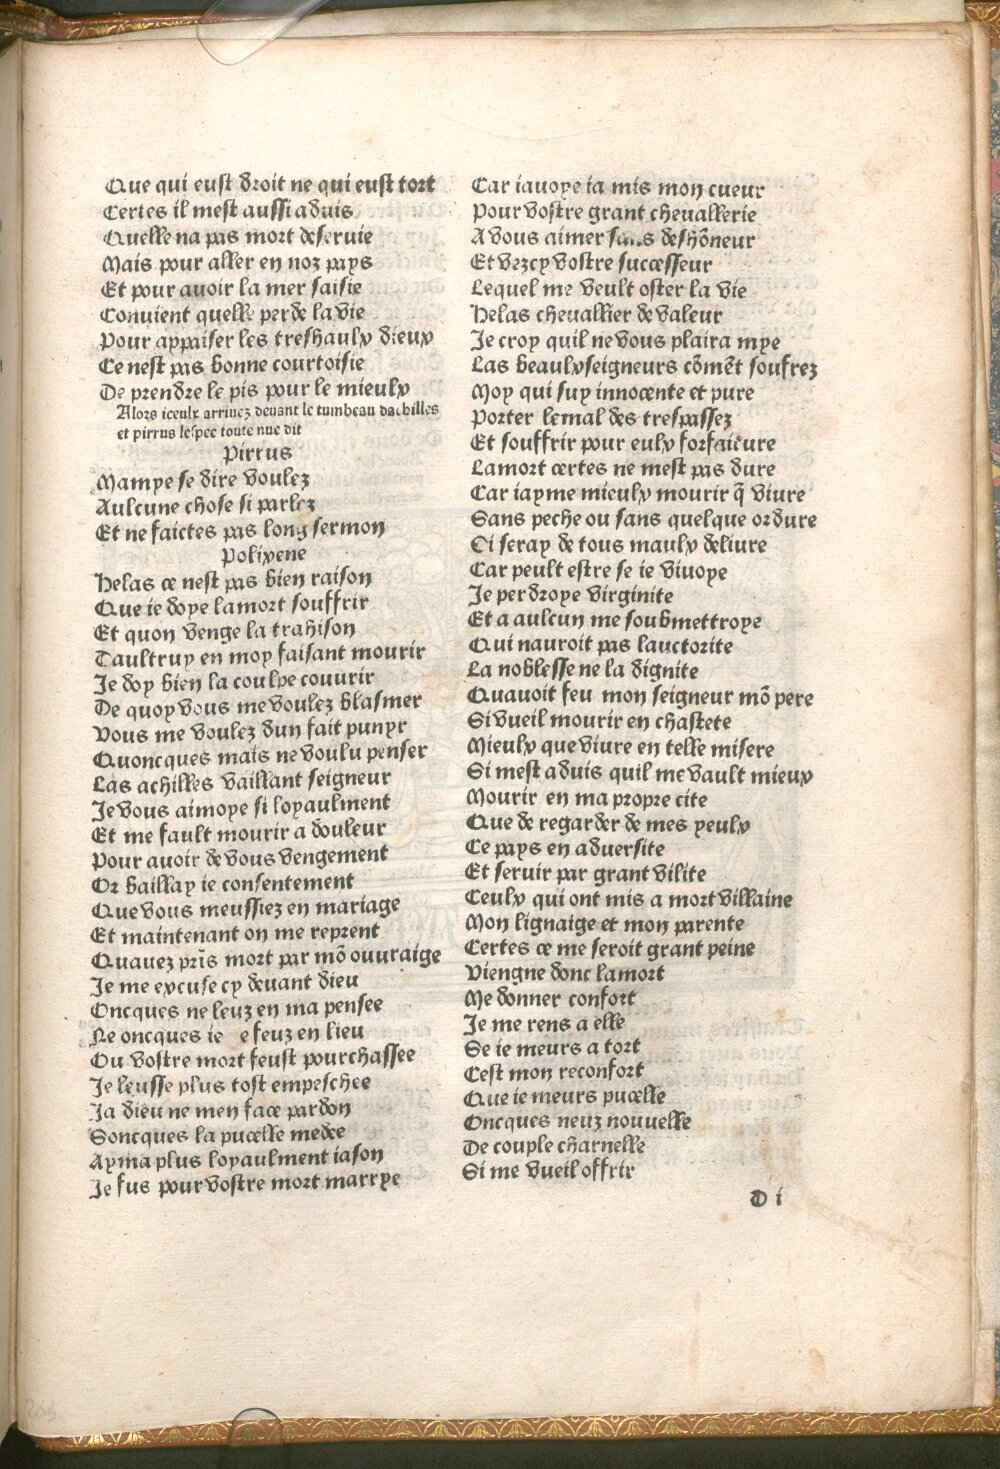 Que qui eust droit ne qui eust tort
Certes il mest aussi aduis
Quelle na pas mort deseruie
Mais pour aller en noz pays
Et pour auoir la mer saisie
Conuient quelle perde la vie
Pour appaiser les treshaulx dieux
Ce nest pas bonne courtoisie
De prendre le pis pour le mieulx
Alors iceulx arriuez deuant le tumbeau dachilles
et pirrus lespee toute nue dit
Pirrus
Mamye se dire voulez
Aulcune chose si parlez
Et ne faictes pas long sermon
Polixene
Helas ce nest pas bien raison
Que ie doye la mort souffrir
Et quon venge la trahison
Daultruy en moy faisant mourir
Je doy bien la coulpe couurir
De quoy vous me voulez blasmer
Vous me voulez dun fait punyr
Quoncques mais ne voulu penser
Las achilles vaillant seigneur
Je vous aimoye si loyaulment
Et me fault mourir a douleur
Pour auoir de vous vengement
Or baillay ie consentement
Que vous meussiez en mariage
Et maintenant on me reprent
Quauez prĩs mort par mõ ouuraige
Je me excuse cy deuant dieu
Oncques ne leuz en ma pensee
Ne oncques ie e feuz en lieu
Ou vostre mort feust pourchassee
Je leusse plus tost empeschee
Ja dieu ne men face pardon
Soncques la pucelle medee
Ayma plus loyaulment iason
Je fus pour vostre mort marrye
Car iauoye ia mis mon cueur
Pour vostre grant cheuallerie
A vous aimer sans deshõneur
Et vezcy vostre successeur
Lequel me veult oster la vie
Helas cheuallier de valeur
Je croy quil ne vous plaira mye
Las beaulx seigneurs cõmẽt soufrez
Moy qui suy innocente et pure
Porter le mal des trespassez
Et souffrir pour eulx forfaicure
La mort certes ne mest pas dure
Car iayme mieulx mourir q̃ viure
Sans peche ou sans quelque ordure
Si seray de tous maulx deliure
Car peult estre se ie viuoye
Je perdroye virginite
Et a aulcun me soubmettroye
Qui nauroit pas lauctorite
La noblesse ne la dignite
Quauoit feu mon seigneur mõ pere
Si vueil mourir en chastete
Mieulx que viure en telle misere
Si mest aduis quil me vault mieux
Mourir en ma propre cite
Que de regarder de mes yeulx
Ce pays en aduersite
Et seruir par grant vilite
Ceulx qui ont mis a mort villaine
Mon lignaige et mon parente
Certes ce me seroit grant peine
Viengne donc la mort
Me donner confort
Je me rens a elle
Se ie meurs a tort
Cest mon reconfort
Que ie meurs pucelle
Oncques neuz nouuelle
De couple charnelle
Si me vueil offrir
D i